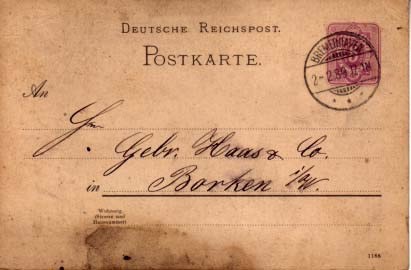 DEUTSCHE REICHSPOST.
POSTKARTE.
BREMERHAVEN
2-2 89 12-1N
An
Hrn
Gebr. Haas & Co.
in Borken i/W.
Wohnung
(Strasse und
Hausnummer)
1188